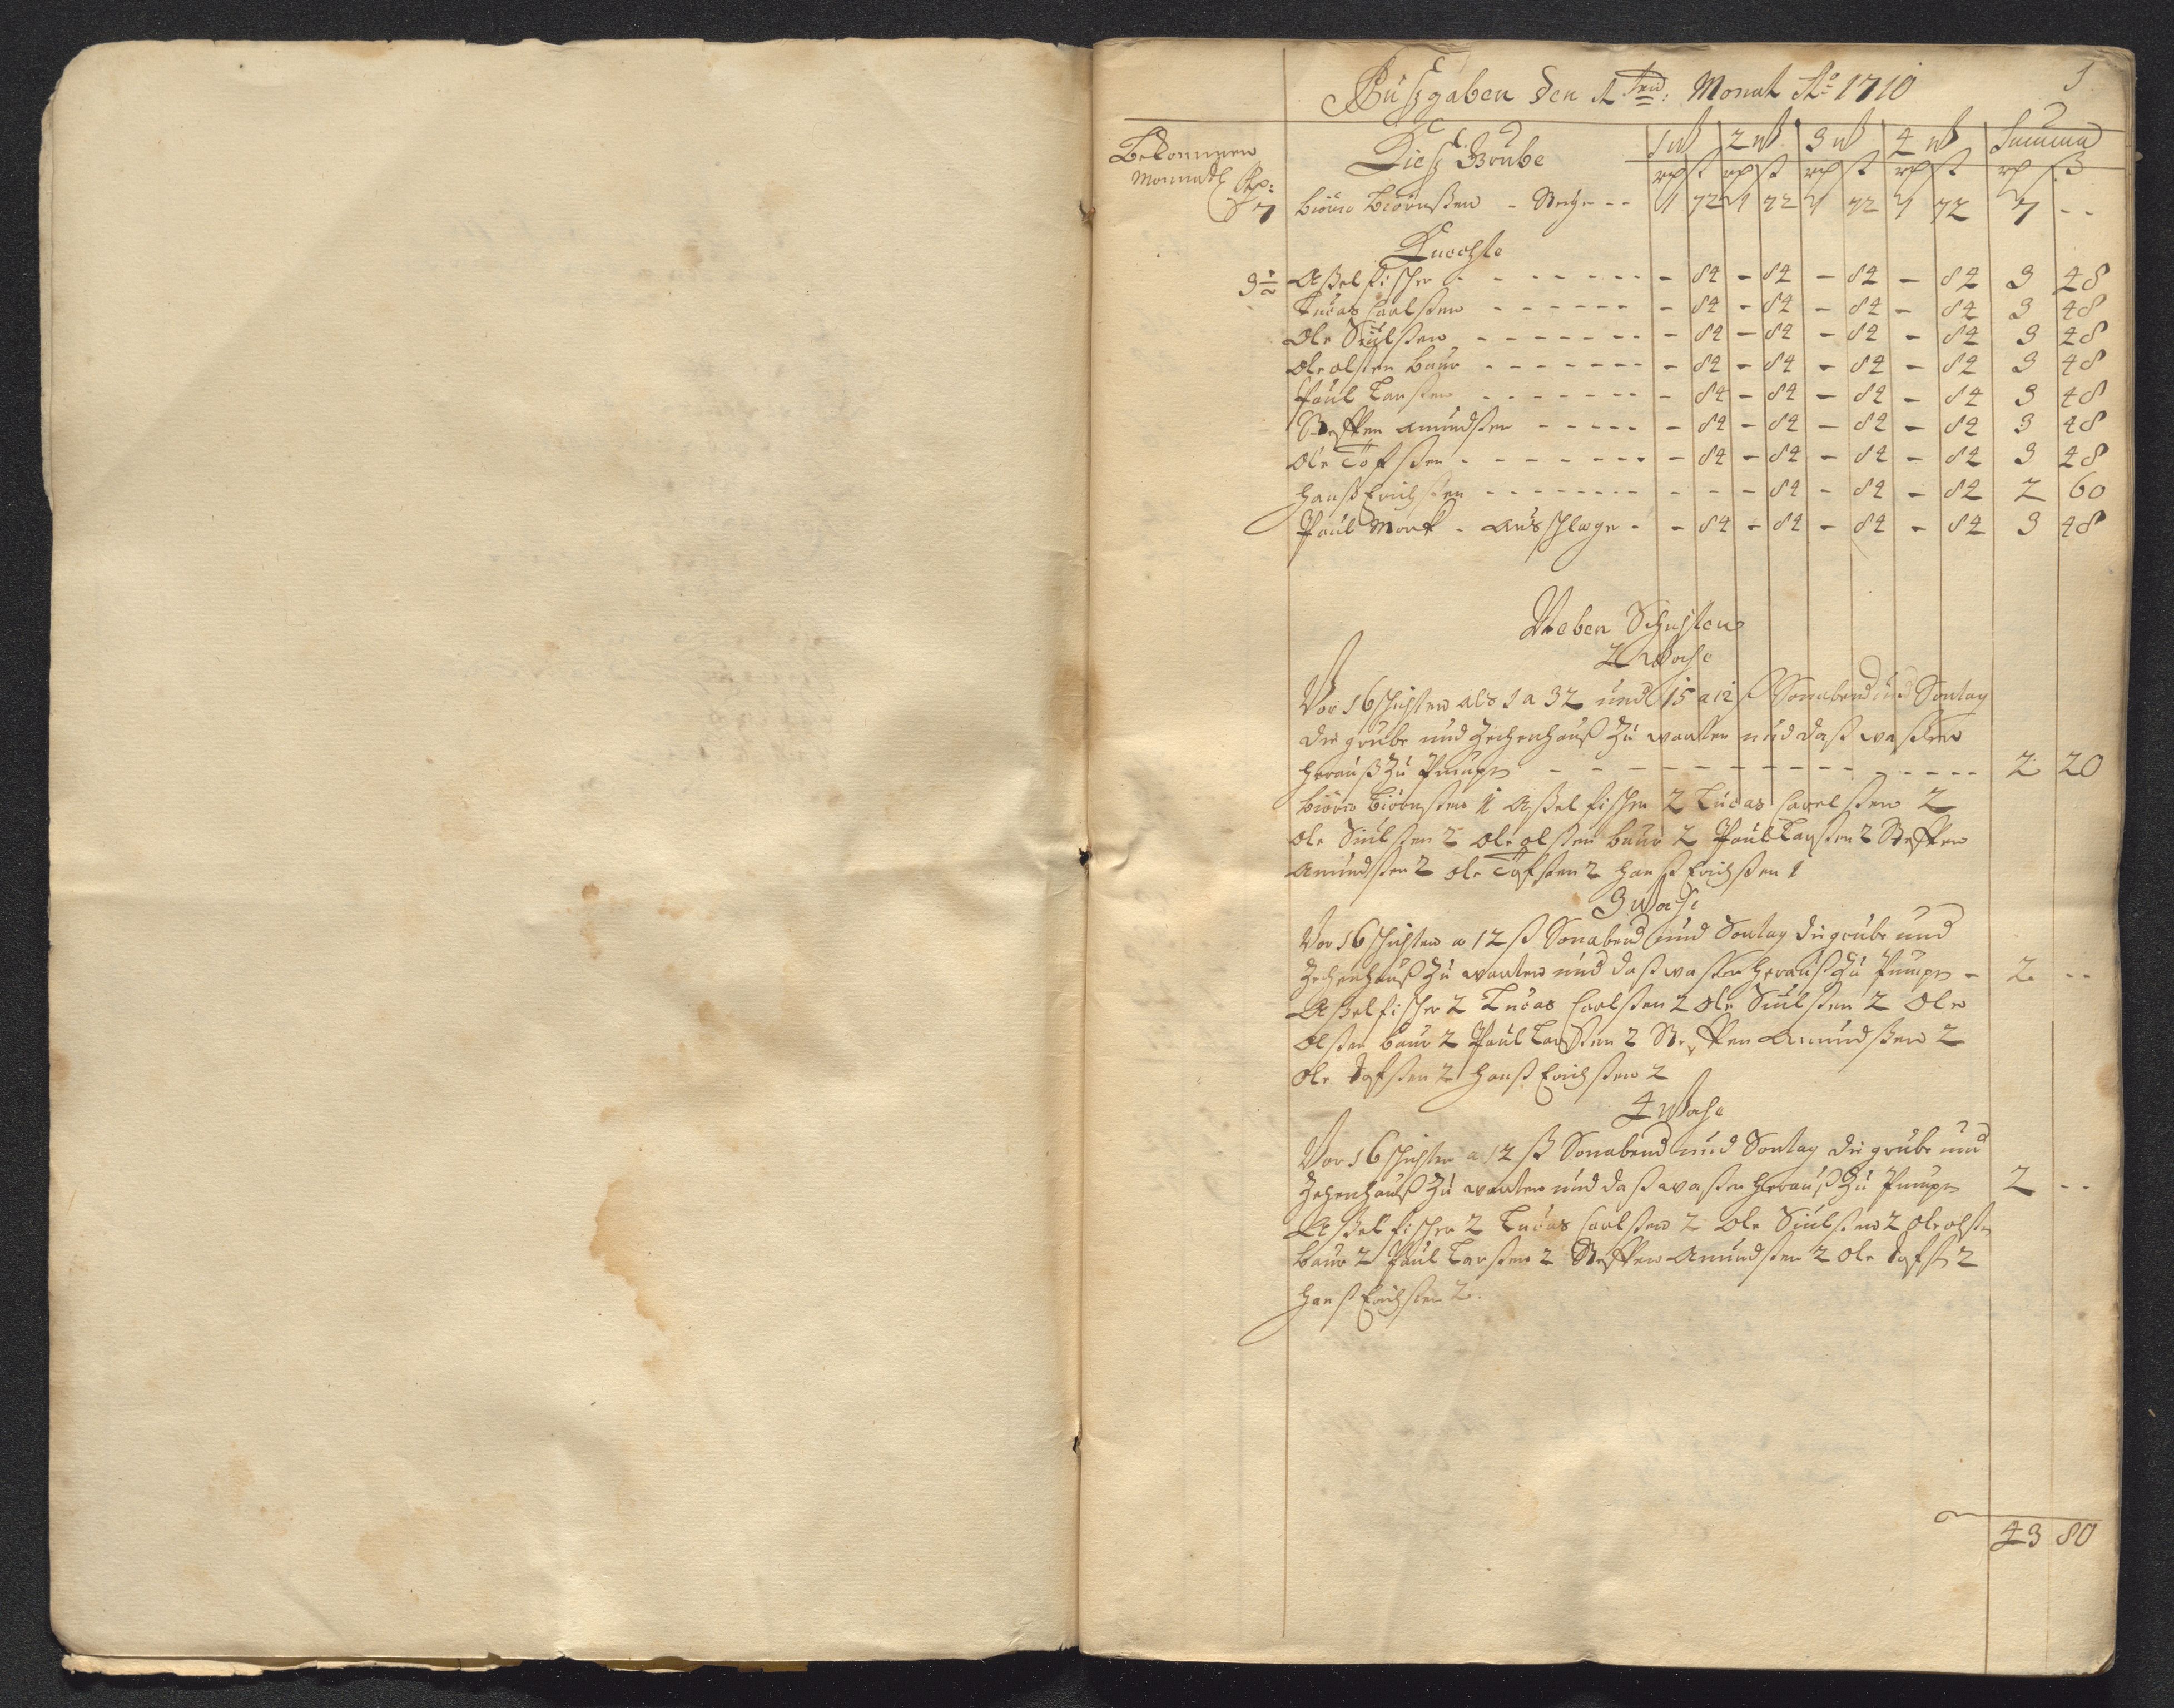 1
Außgaben den 1ten: Monat Ao 1710
Bekommen Monatl Rp:
Dieß Grube 1 W 2 W 3 W 4 W Summa
rp ß rp ß rp ß rp ß rp ß
7 Biörn Biörnßen - Steiger - - 1 72 1 72 1 72 1 72 7 - -
Knechte
3½ Aßel fischer - - - - - - - - 84 - 84 - 84 - 84 3 48
Lucas Carlßen - - - - - - - 84 - 84 - 84 - 84 3 48
Ole Siulßen - - - - - - - - 84 - 84 - 84 - 84 3 48
Ole olßen baur - - - - - - - - 84 - 84 - 84 - 84 3 48
Paul Larßen - - - - - - - - 84 - 84 - 84 - 84 3 48
Steffen amundßen - - - - - - 84 - 84 - 84 - 84 3 48
Ole Tofßen - - - - - - - - 84 - 84 - 84 - 84 3 48
Hanß Erichßen - - - - - - - - - - 84 - 84 - 84 2 60
Paul Mork - ausschlager - - 84 - 84 - 84 - 84 3 48
Neben Schichten
2 Woche
Vor 16 schichten als 1 a 32 und 15 a 12 ß Sonabend und Sontag
die grube und Zechenhauß zu warten und daß waßer
herauß zu Pumpen - - - - - - - - - - - - - - 2 20
Biörn Biörnßen 1 Aßel fischer 2 Lucas Carelßen 2
Ole Siulßen 2 Ole olßen baur 2 Paul Larßen 2 Steffen
Amundßen 2 ole Tofßen 2 Hanß Erichßen 1
3 Woche
Vor 16 schichten a 12 ß Sonabend und Sontag die grube und
Zechenhauß zu warten und daß waßer herauß zu Pumpen - 2 - -
Aßel fischer 2 Lucas Carlßen 2 Ole Siulßen 2 Ole
olßen baur 2 Paul Larßen 2 Steffen Amundßen 2
Ole Tofßen 2 Hanß Erichßen 2
4 Woche
Vor 16 schichten a 12 ß Sonabend und Sontag die grube und
Zechenhauß zu warten und daß waßer herauß zu Pumpen 2 - -
Aßel fischer 2 Lucas Carlßen 2 Ole Siulßen 2 Ole olßen
baur 2 Paul Larßen 2 Steffen Amundßen 2 Ole Tofß 2
Hanß Erichßen 2
43 80